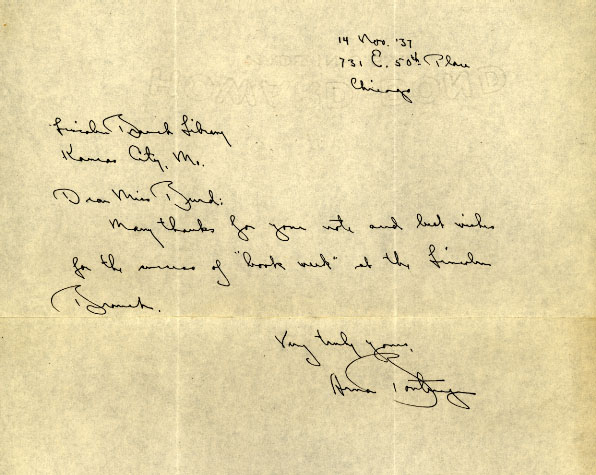 14 Nov. '37
731 E. 50th Place
Chicago
Lincoln Branch Library
Kansas City, Mo.
Dear Miss Burd:
Many thanks for your note and best wishes
for the success of "book week" at the Lincoln
Branch.
Very truly yours,
Arna Bontemps